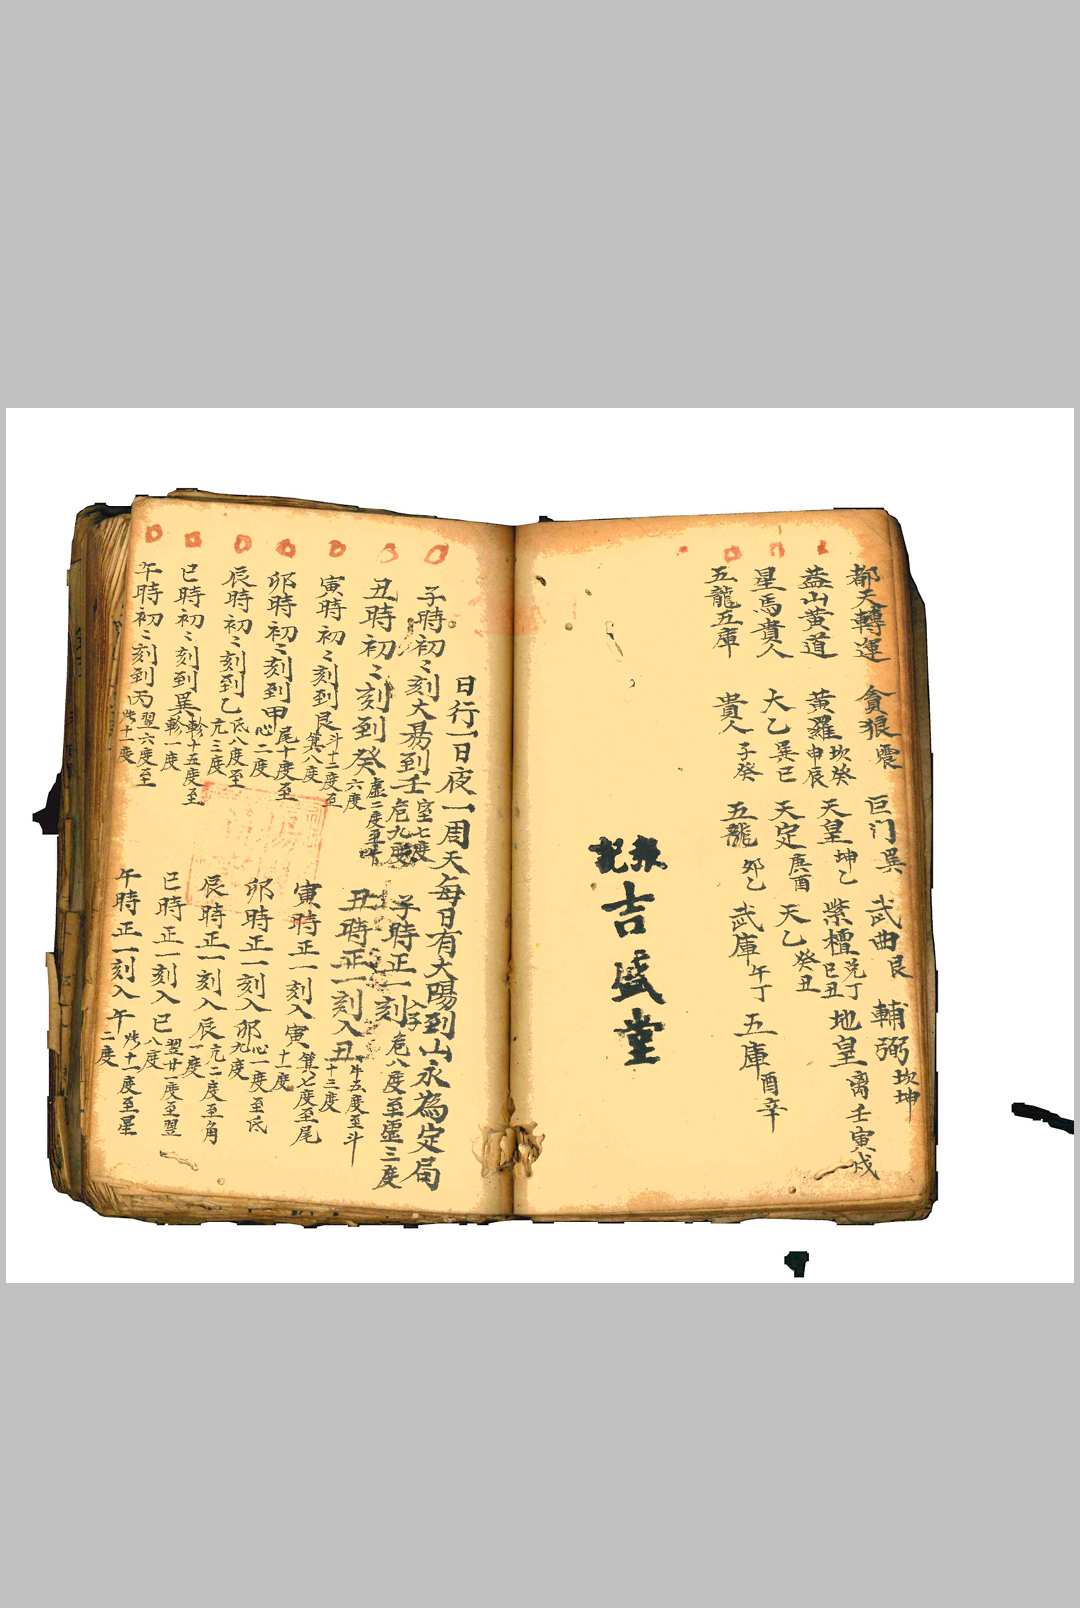 都天轉運 貪狼震 巨门巽 武曲艮 輔弼坎坤
蓋山黃道 黃羅坎癸申辰 天皇坤乙 紫檀兑丁巳丑 地皇离壬寅戌
星馬貴人 大乙巽巳 天定庚酉 天乙癸丑
五龍五庫 貴人子癸 五龍卯乙 武庫午丁 五庫酉辛
張記
吉盛堂
日行一日夜一周天每日有大陽到山永為定局
子時初〻刻大昜到壬室七度危九度 子時正一刻入子危八度至虛三度
丑時初〻刻到癸虛二度至牛六度 丑時正一刻入丑牛五度至斗十三度
寅時初〻刻到艮斗十二度至箕八度 寅時正一刻入寅箕七度至尾十一度
卯時初〻刻到甲尾十度至心二度 卯時正一刻入卯心一度至氐九度
辰時初〻刻到乙氐八度至亢三度 辰時正一刻入辰亢二度至角一度
巳時初〻刻到巽軫十五度至軫一度 巳時正一刻入巳翌廿一度至翌八度
午時初〻刻到丙翌六度至 十一度 午時正一刻入午 十一度至星二度